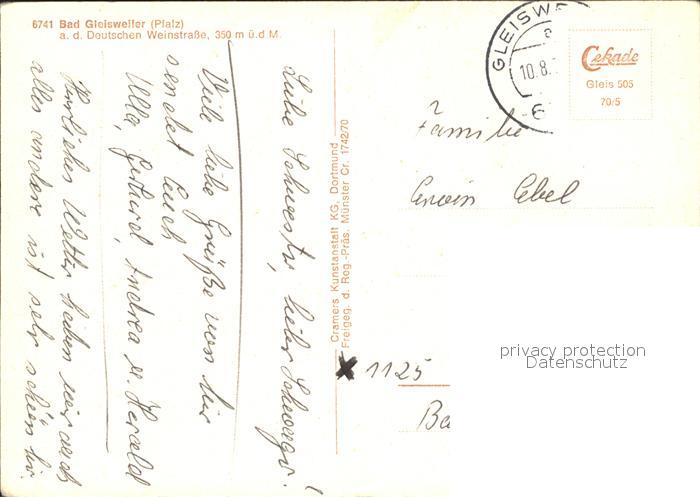 6741 Bad Gleisweiler (Pfalz)
a. d. Deutschen Weinstraße, 350 m ü.d M.
Liebe Schwester, lieber Schwager!
Viele liebe Grüße von hir
sendet Euch
Ulla, Gerhard, Andrea u. Herald
Herrliches Wetter haben wir auch
alles andere ist sehr schön hir.
Cramers Kunstanstalt KG, Dortmund
Freigeg. d. Reg.-Präs. Münster Cr. 1742/70
GLEISW
10.8.
6
Cekade
Gleis 505
70/5
Familie
Erwin Ebel
1125
Ba
privacy protection
Datenschutz